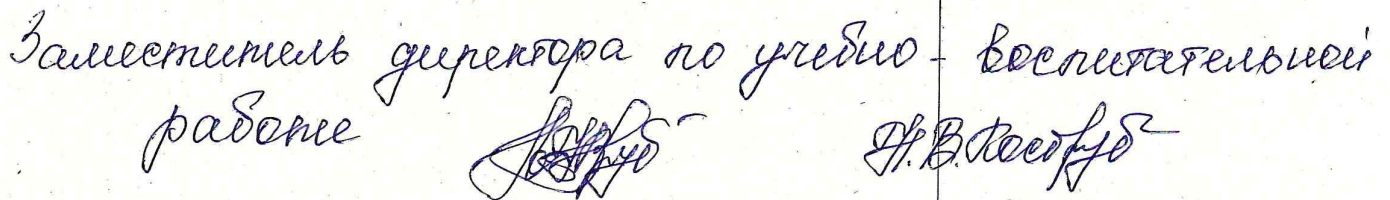 Заместитель директора по учебно- воспитательной
работе Н.В. Коструб